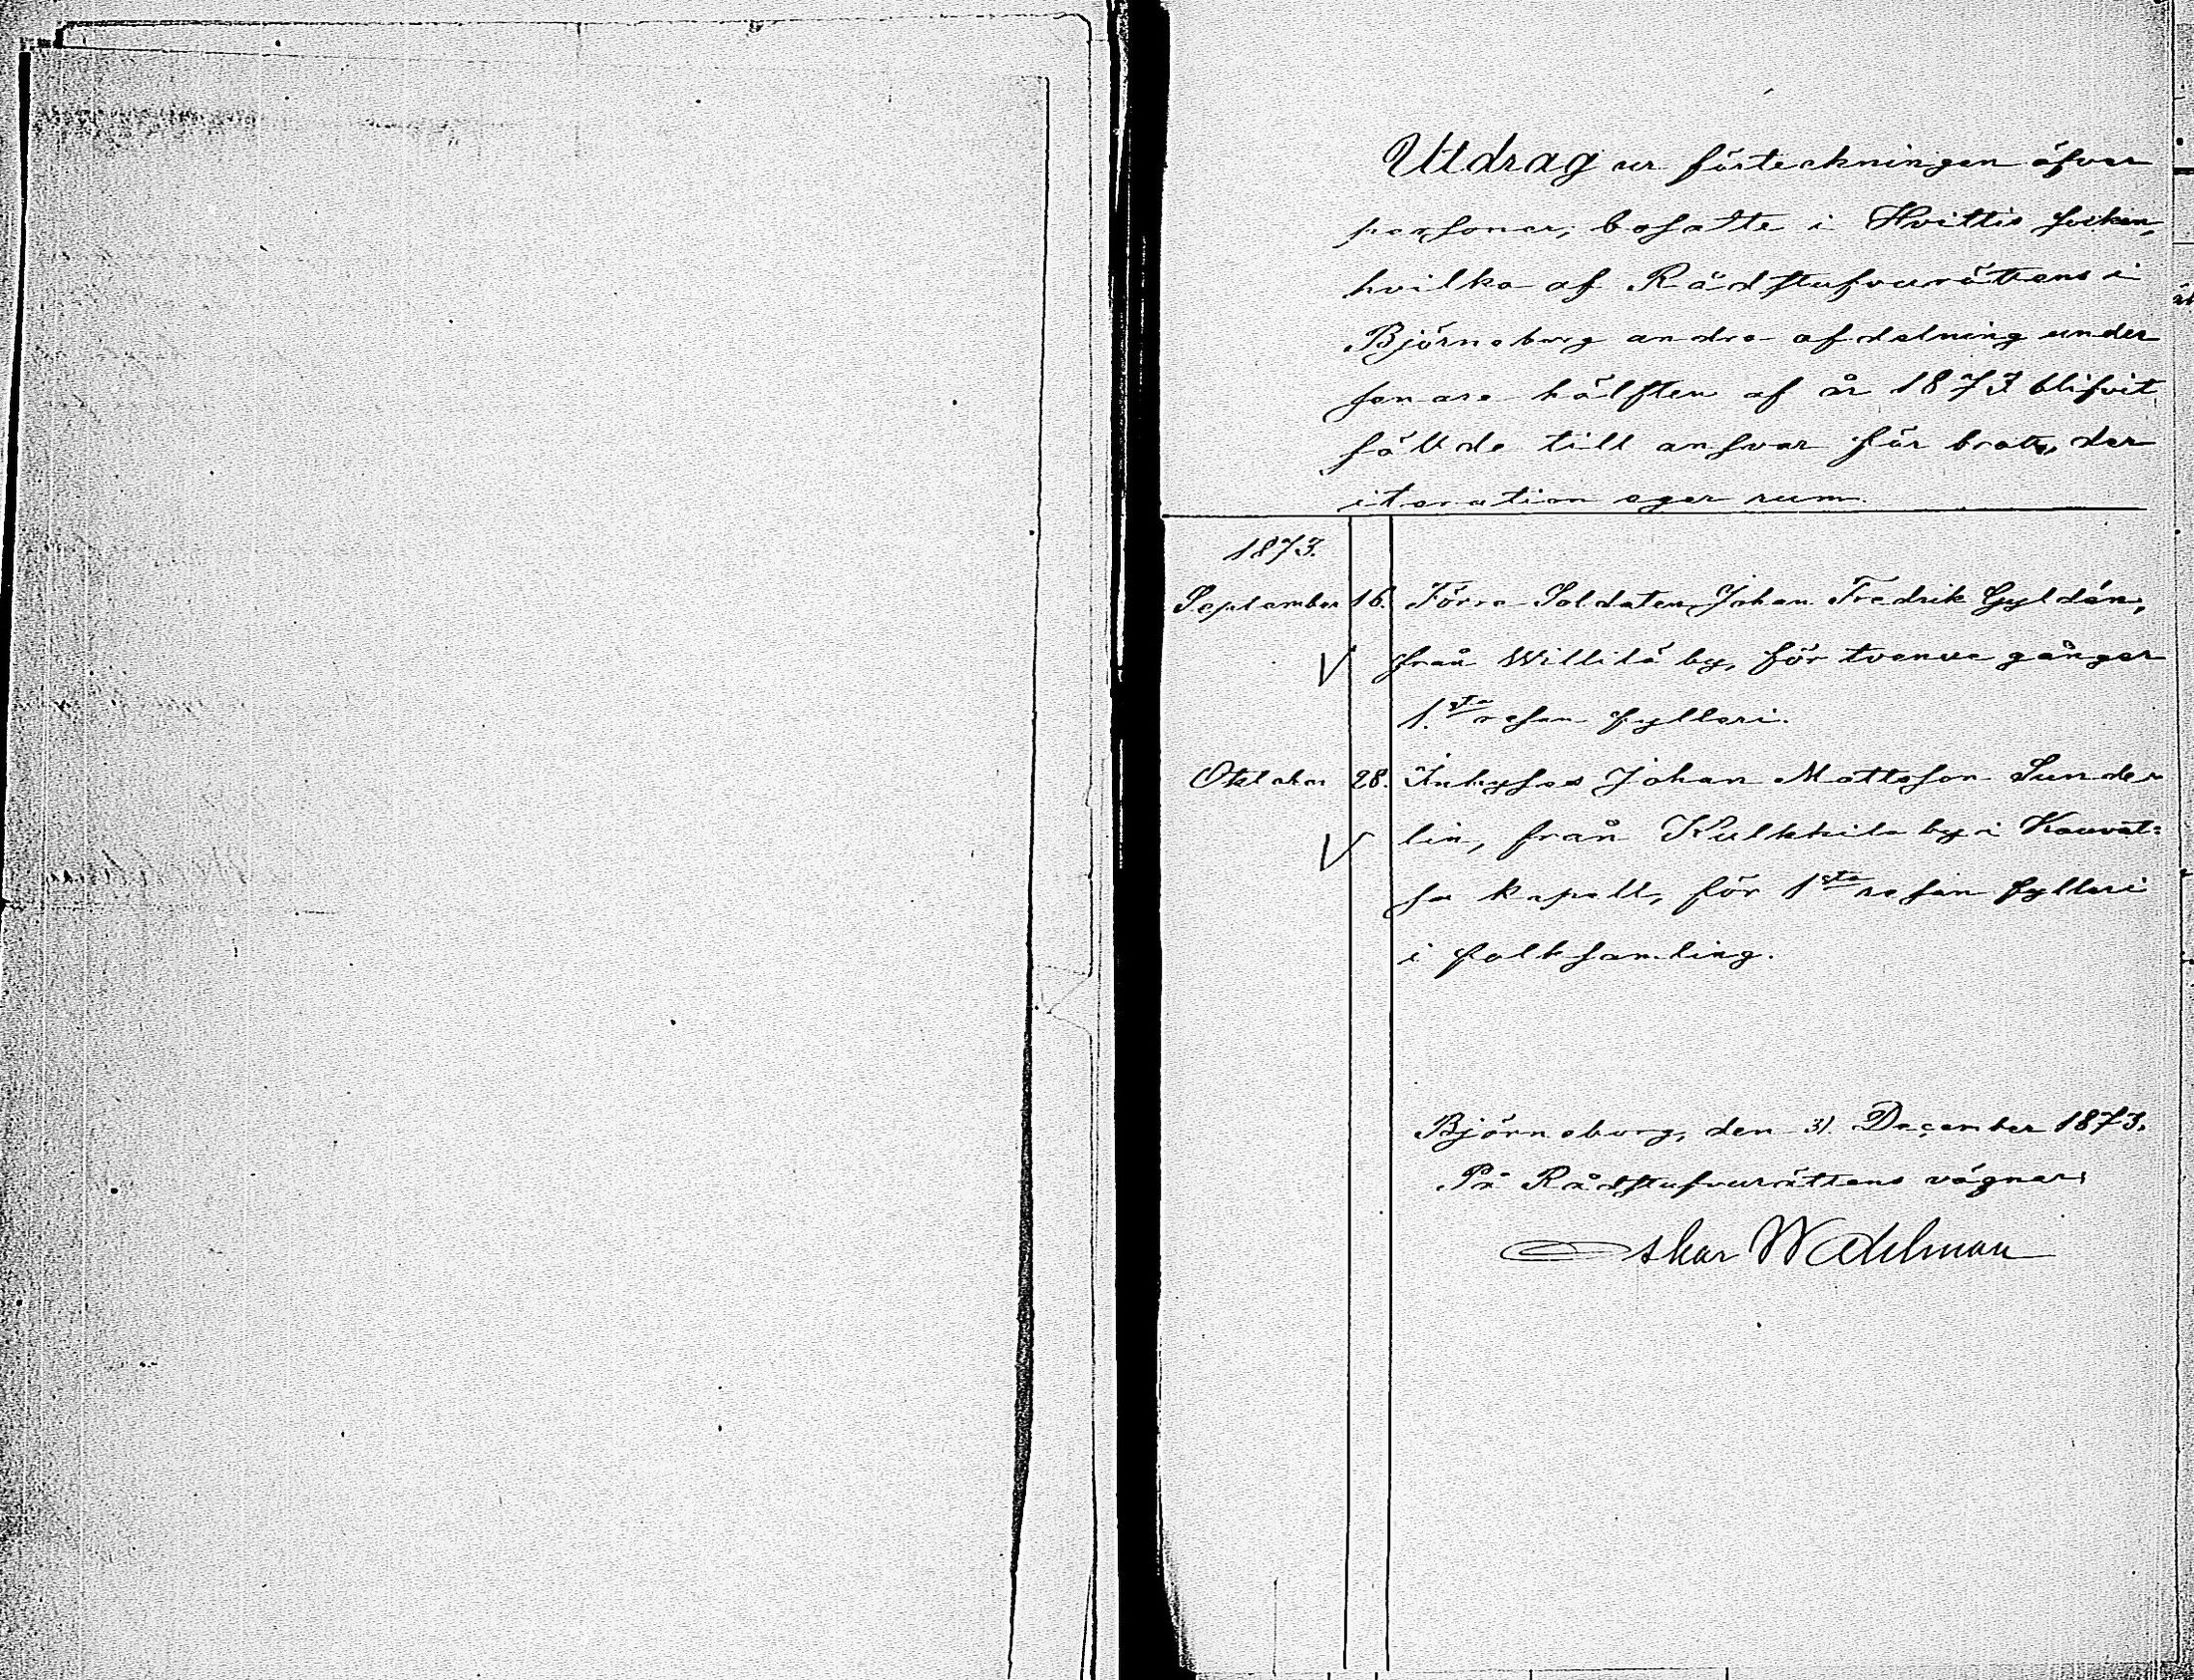 Utdrag ur förteckningen öfver
personer, bosatte i Hvittis socken,
hvilka af Rådstufvurättens i
Björneborg andra afdelning under
senare hälften af år 1873 blifvit
fällde till ansvar för brott, der
iteration eger rum.
1873.
September 16. Förre Soldaten Johan Fredrik Gyldén,
från Willilä by, för tvenne gånger
1.sta resan fylleri.
Oktober 28. Inhyses Johan Mattsson Sunder
lin, från Kulkkila by i Kauvat=
sa kapell, för 1sta resan fylleri
i folksamling.
Björneborg, den 31. December 1873.
På Rådstufvurättens vägnar:
Oskar Wadelman